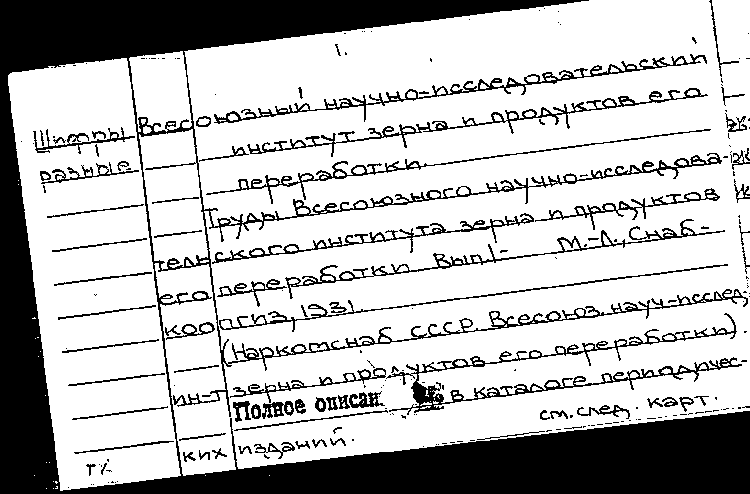 1.
Шифры разные
Всесоюзный научно-исследовательский
институт зерна и продуктов его
переработки.
Труды Всесоюзного научно-исследова-
тельского института зерна и продуктов
его переработки Вып.1- М.-Л., Снаб-
коопгиз, 1931.
(Наркомснаб СССР. Всесоюз. науч-исслед.
ин-т зерна и продуктов его переработки).
Полное описан. в каталоге периодичес-
ких изданий.
см. след. карт.